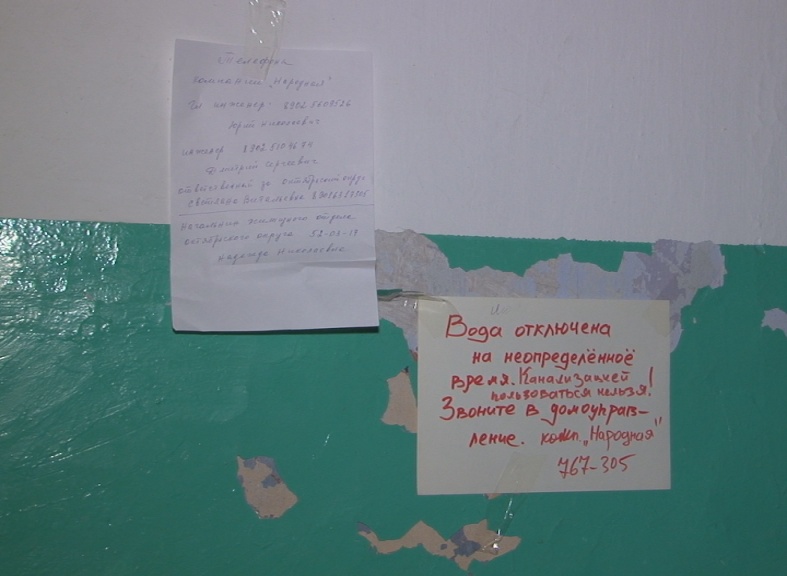 Телефоны
компании „Народная"
Гл инженер: 8902 5609526
Юрий Николаевич
инженер 8902
Дмитрий Сергеевич
ответственный за октябрьский округ
Светлана Витальевна
Начальник жилищного отдела
октябрьского округа 52-03-19
Надежда Николаевна
Вода отключена
на неопределённоё
время. Канализацией
пользоваться нельзя!
Звоните в домоуправ-
ление. комп. „Народная"
767-305